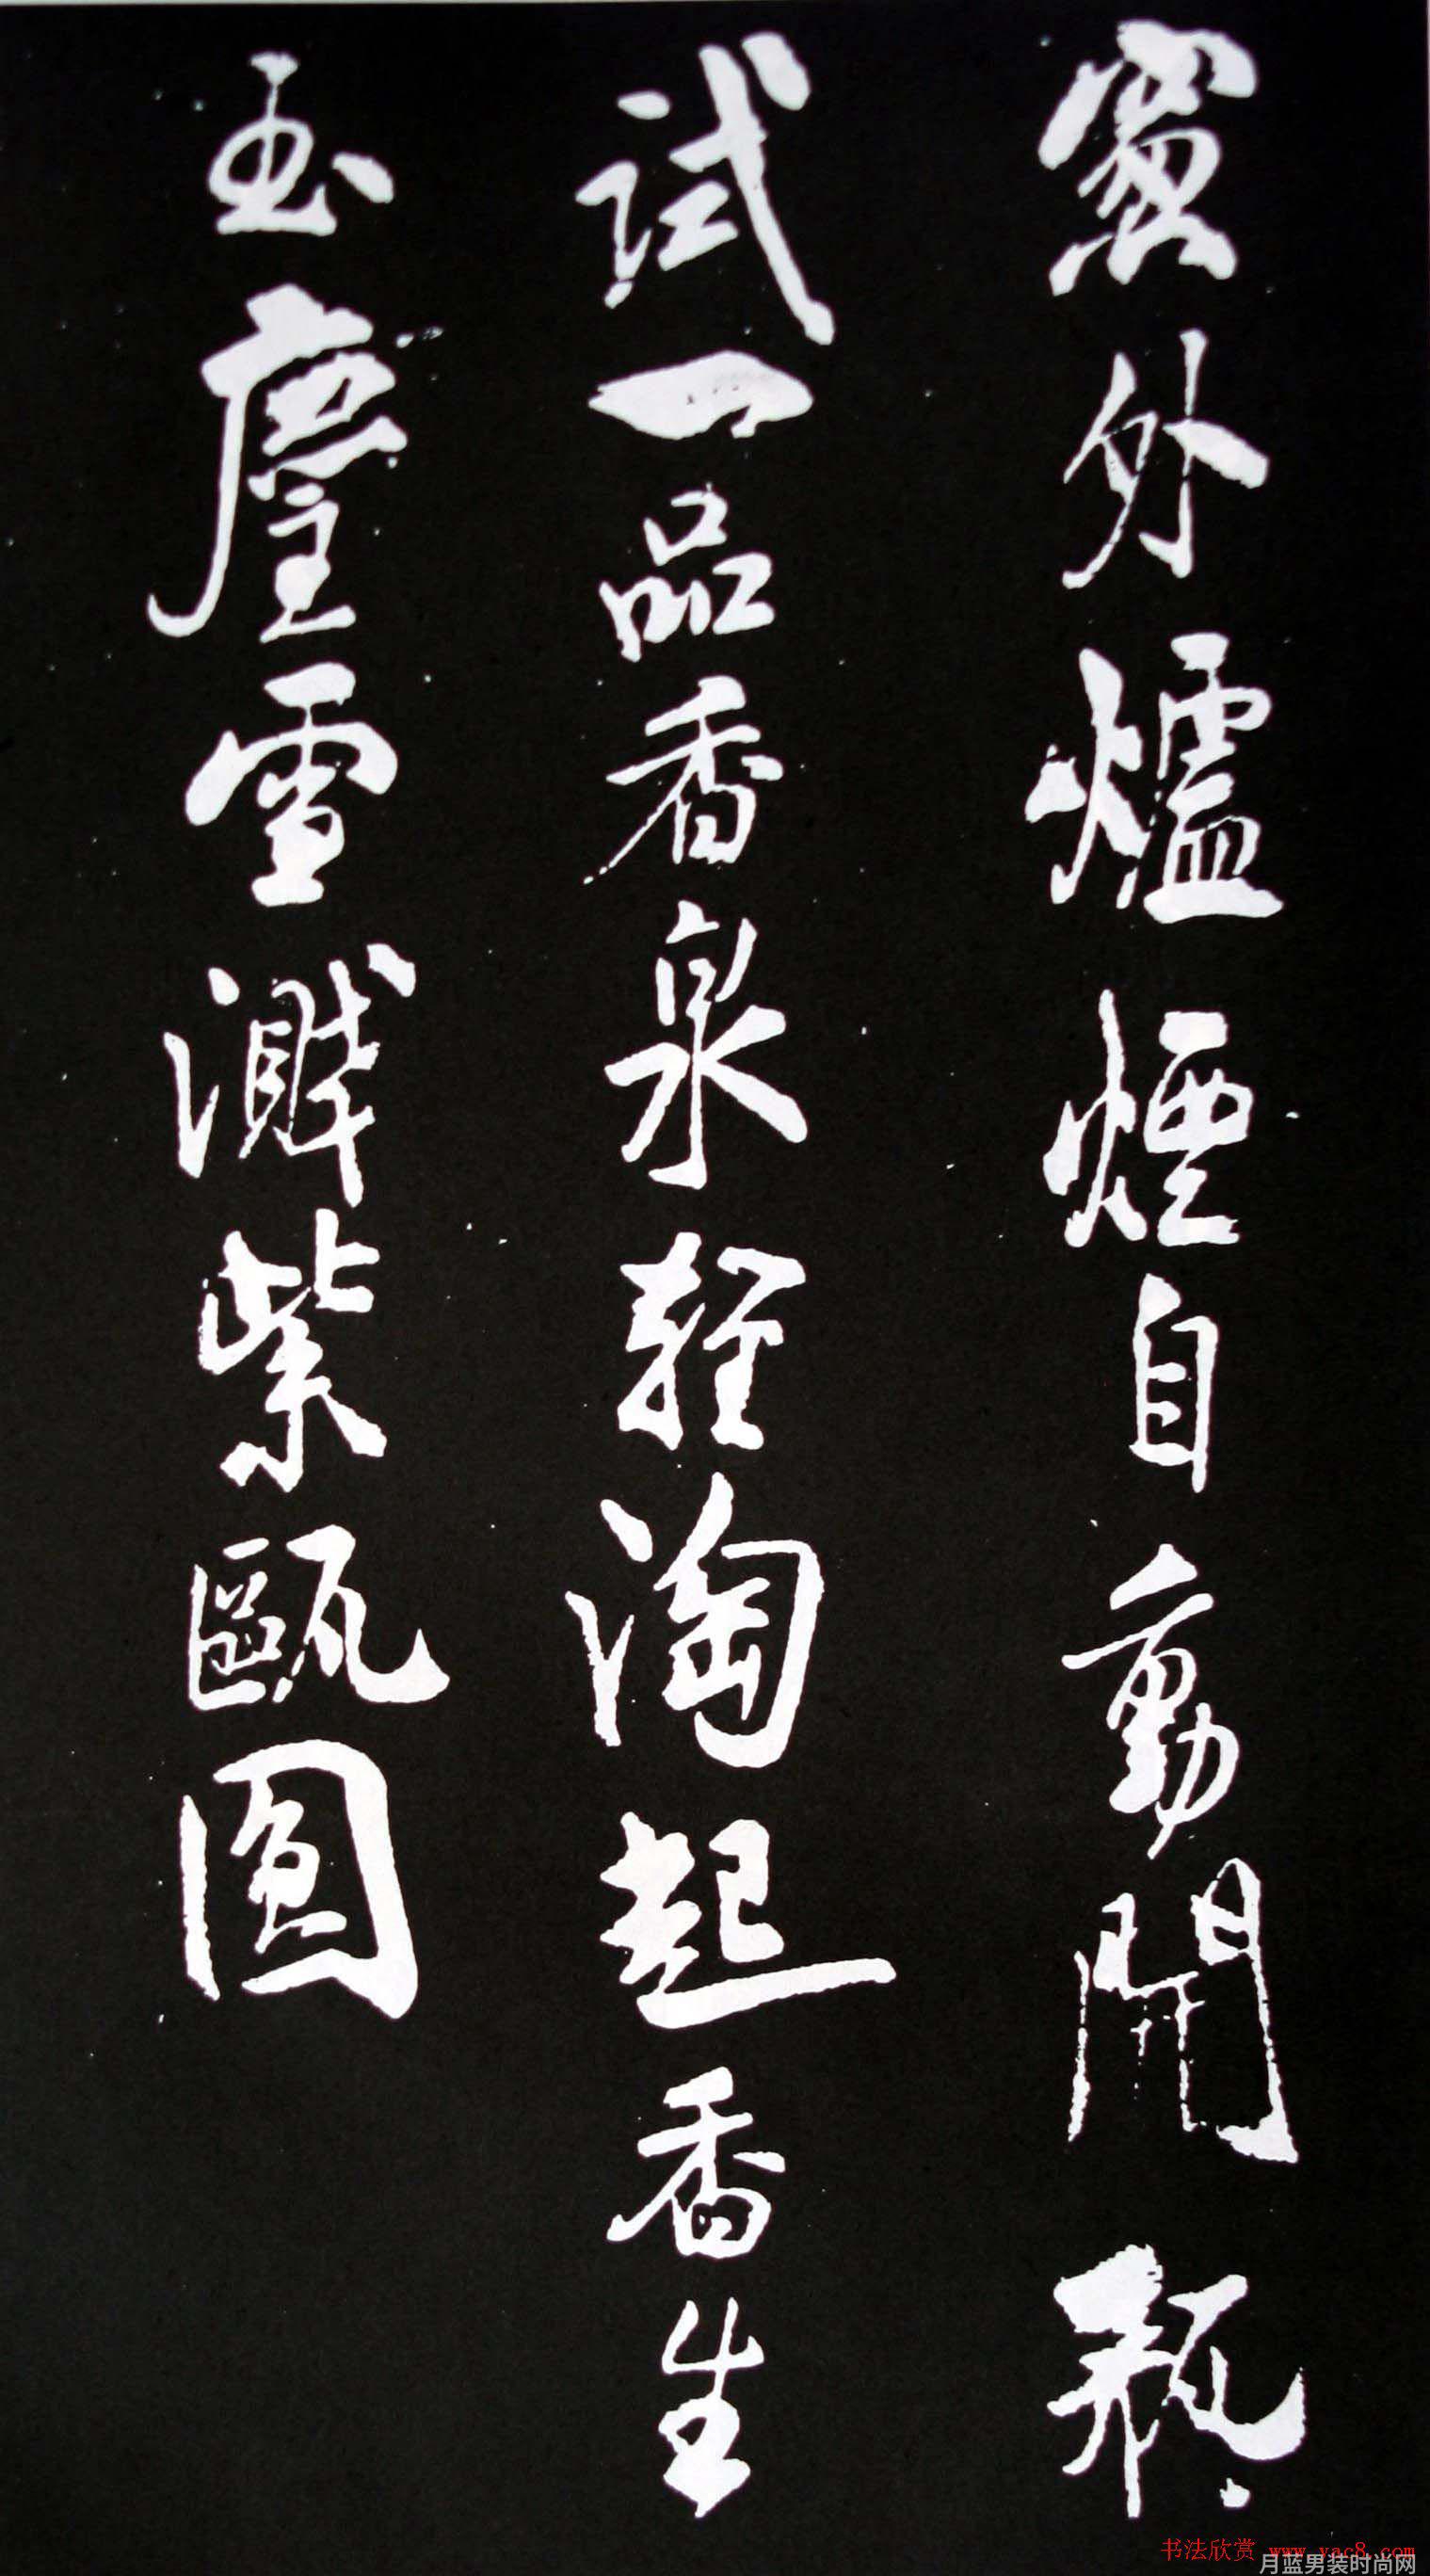 窗外爐煙自動開瓶
試一品香泉輕淘起香生
玉塵雪濺紫甌圓
书法欣赏 www.yac8.com
月蓝男装时尚网